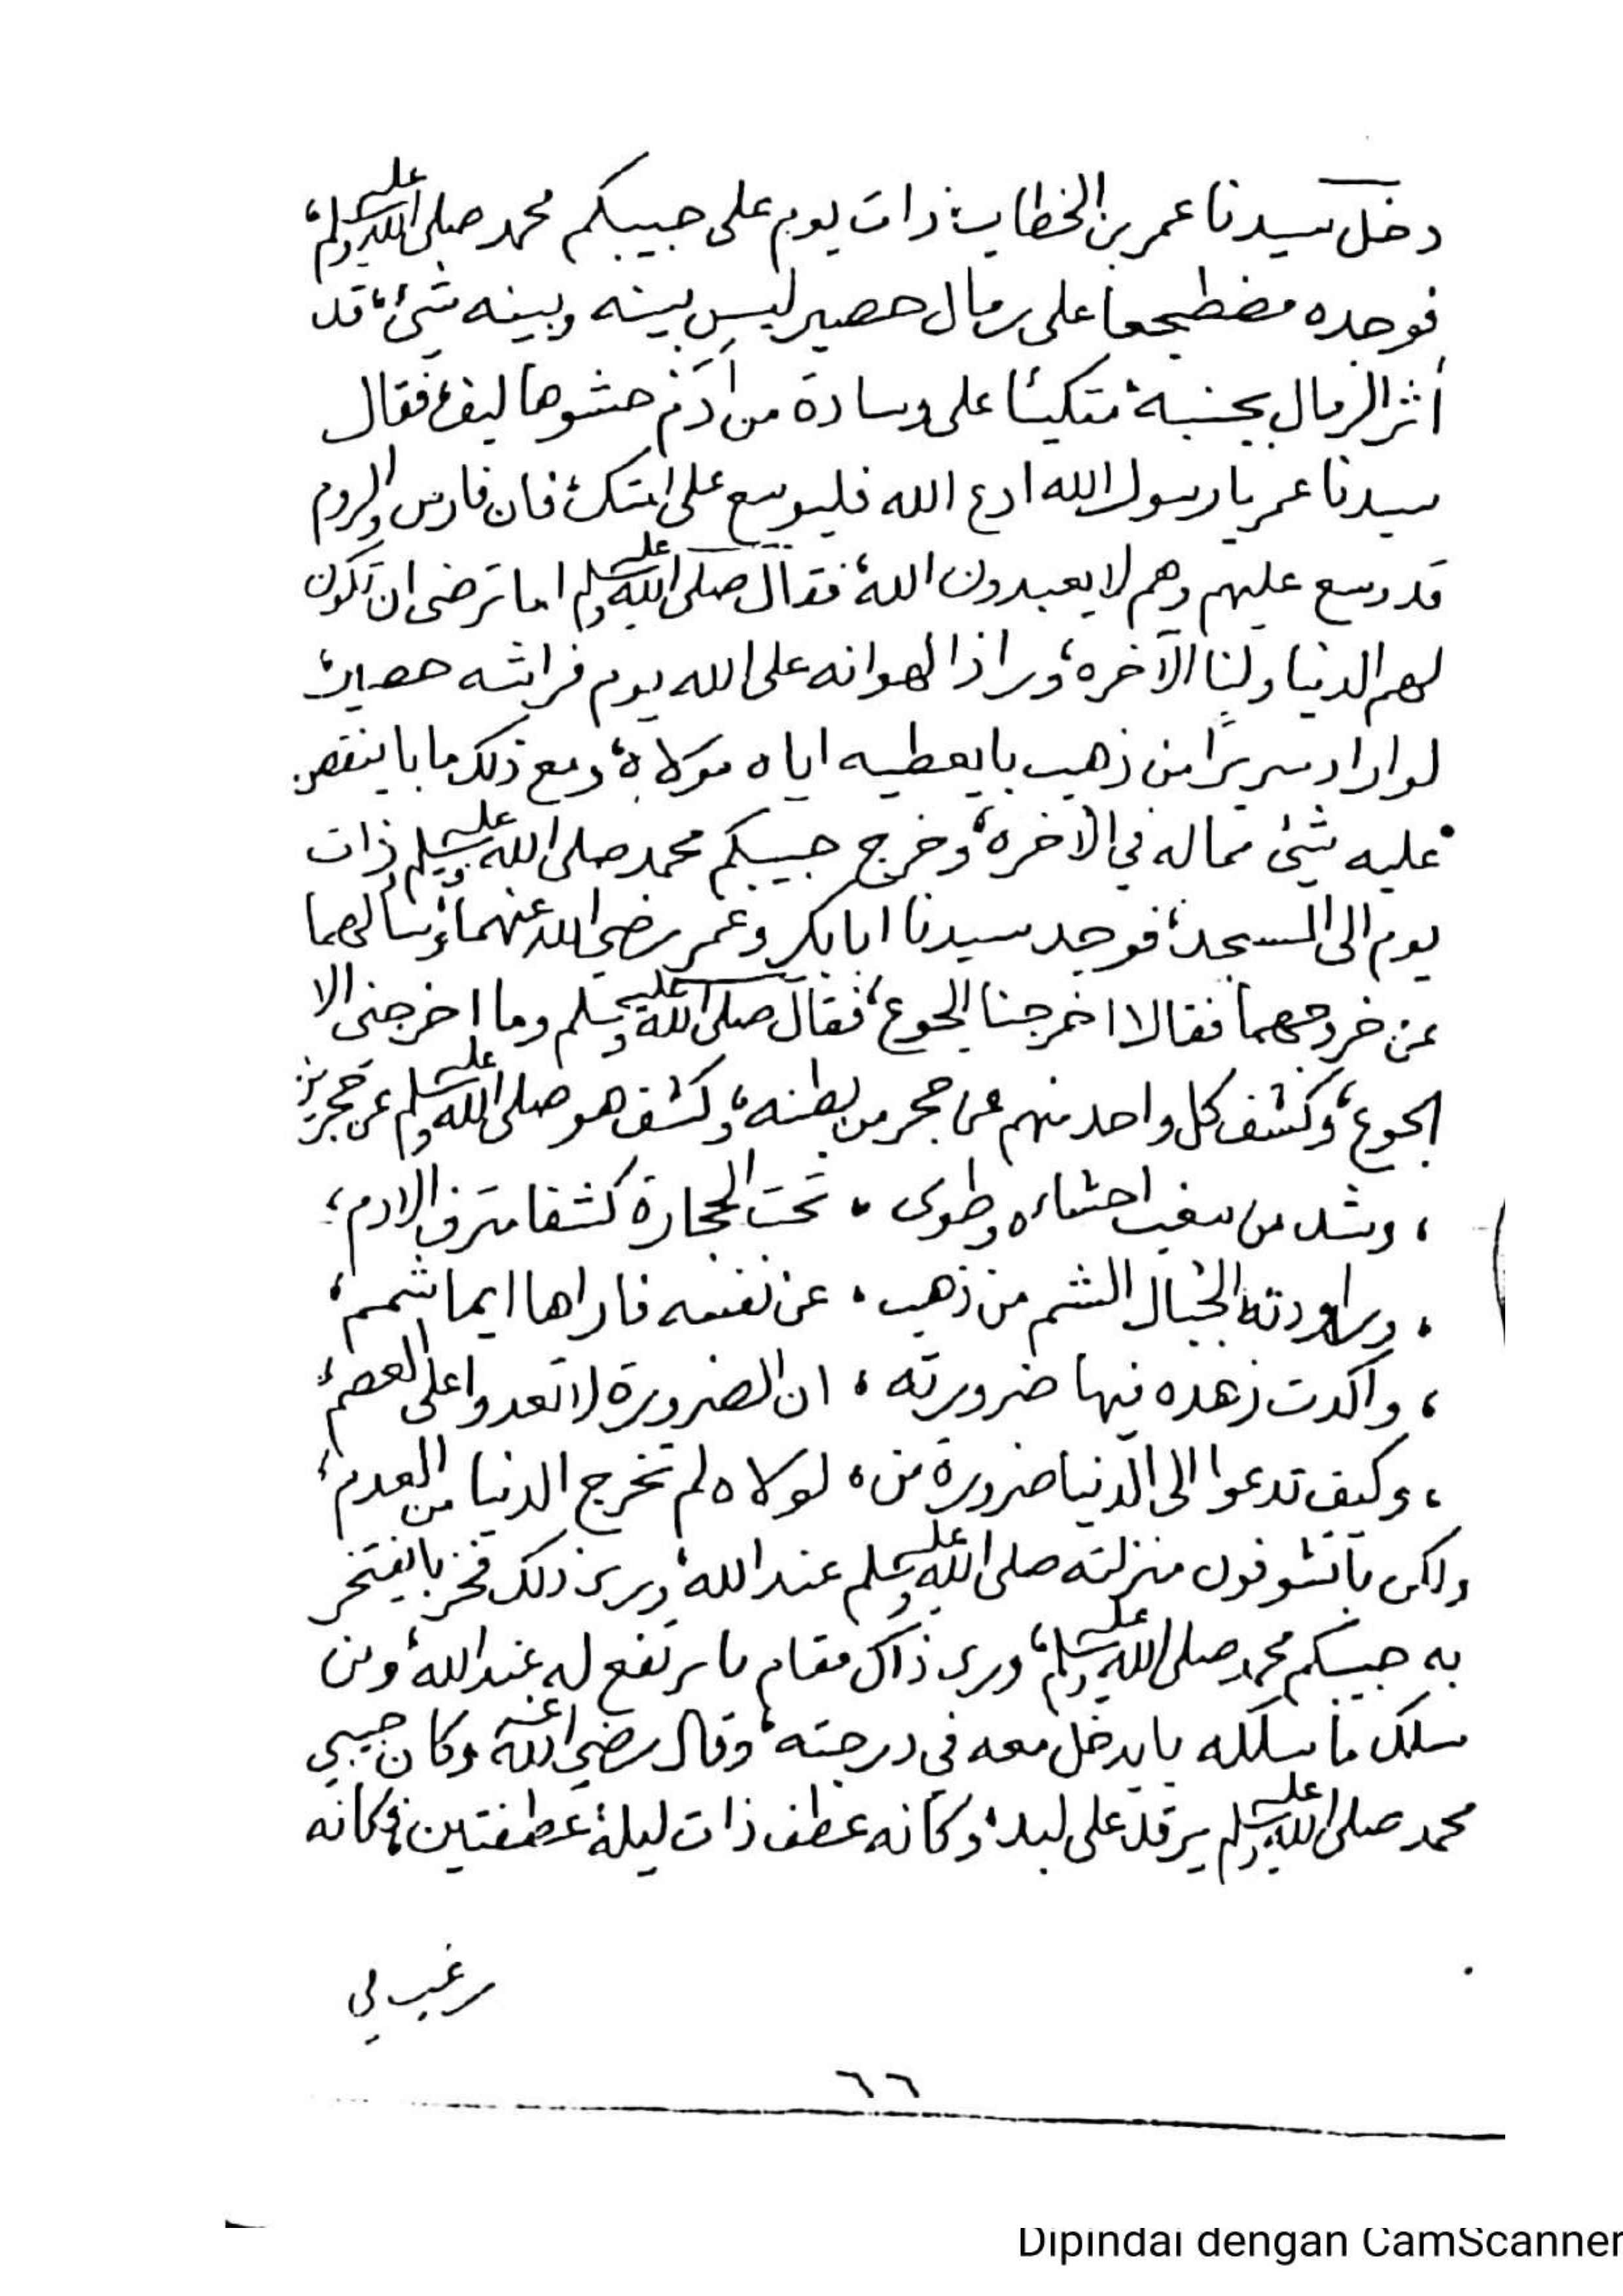 دخل سيدنا عمر بن الخطاب ذات يوم على حبيبكم محمد صلى الله عليه وسلم،
فوجده مضطجعا على رمال حصير ليس بينه وبينه شئ، قد
أثر الرمال بجنبه، متكيئا على وسادة من أدم حشوها ليف، فقال
سيدنا عمر يا رسول الله ادع الله فليوسع على امتك، فان فارس والروم
قد وسع عليهم وهم لا يعبدون الله، فقال صلى الله عليه وسلم اما ترضى ان تكون
لهم الدنيا ولنا الآخره، وراذا لهوانه على الله يوم فراشه حصير،
لو اراد سريرًا من ذهب بايعطيه اياه مولاه، ومع ذلك ما باينقص
عليه شئ مماله في الآخره، وخرج حبيبكم محمد صلى الله عليه وسلم ذات
يوم الى المسجد، فوجد سيدنا ابابكر وعمر رضي الله عنهما، وسألهما
عن خروجهما فقالا اخرجنا الجوع، فقال صلى الله عليه وسلم وما اخرجني الا
الجوع، وكشف كل واحد منهم عن حجر من بطنه، وكشف هو صلى الله عليه وسلم عن حجرين
، وشد من سغب احشاءه وطوى ، تحت الحجارة كشفا مترف الادم،
، وراودته الجبال الشم من ذهب ، عن نفسه فاراها ايما شمم،
، واكدت زهده فيها ضرورته ، ان الضرورة لا تعدوا على العصم،
، وكيف تدعوا الى الدنيا ضرورة من ، لولاه لم تخرج الدنيا من العدم،
ولكن باتشوفون منزلته صلى الله عليه وسلم عند الله، ورى ذلك فخر بايفتخر
به حبيبكم محمد صلى الله عليه وسلم، ورى ذاك مقام بايرتفع له عند الله، ومن
سلك ماسلكه بايدخل معه في درجته، وقال رضي الله عنه وكان حبيبي
محمد صلى الله عليه وسلم يرقد على لبد، وكانه عطف ذات ليلة عطفتين، فكانه
رغب لي
٦٦
Dipindai dengan CamScanner